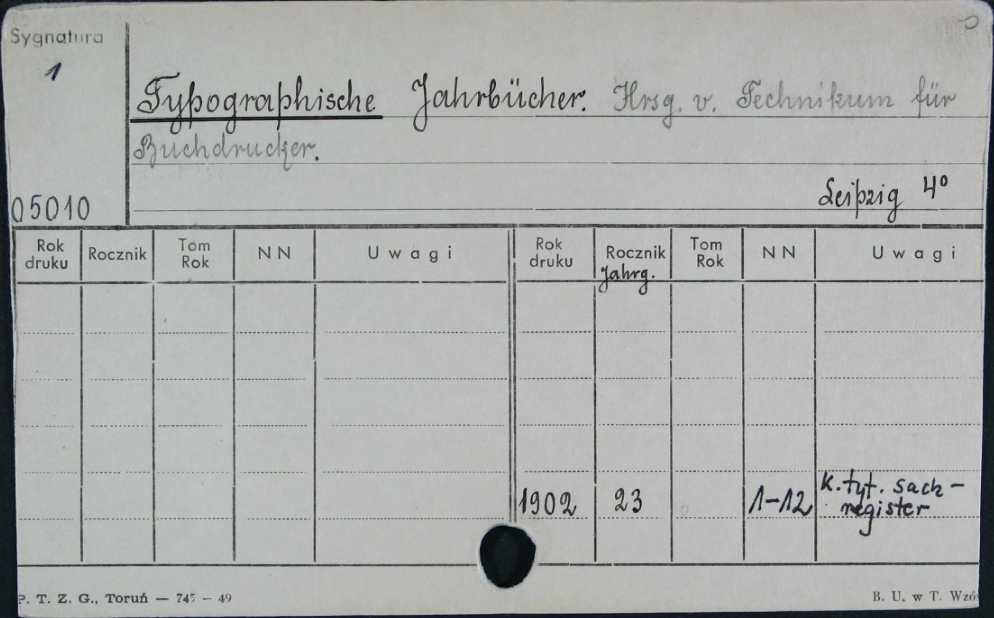 Sygnatura
1
Typographische Jahrbücher. Hrsg. v. Technikum für
Buchdrucker.
Leipzig 4°
05010
Rok druku Rocznik Tom Rok NN Uwagi Rok druku Rocznik Jahrg. Tom Rok NN Uwagi
1902 23 1-12 k. tyt. sach-
register
P. T. Z. G., Toruń — 745 — 49 B. U. w T. Wzó